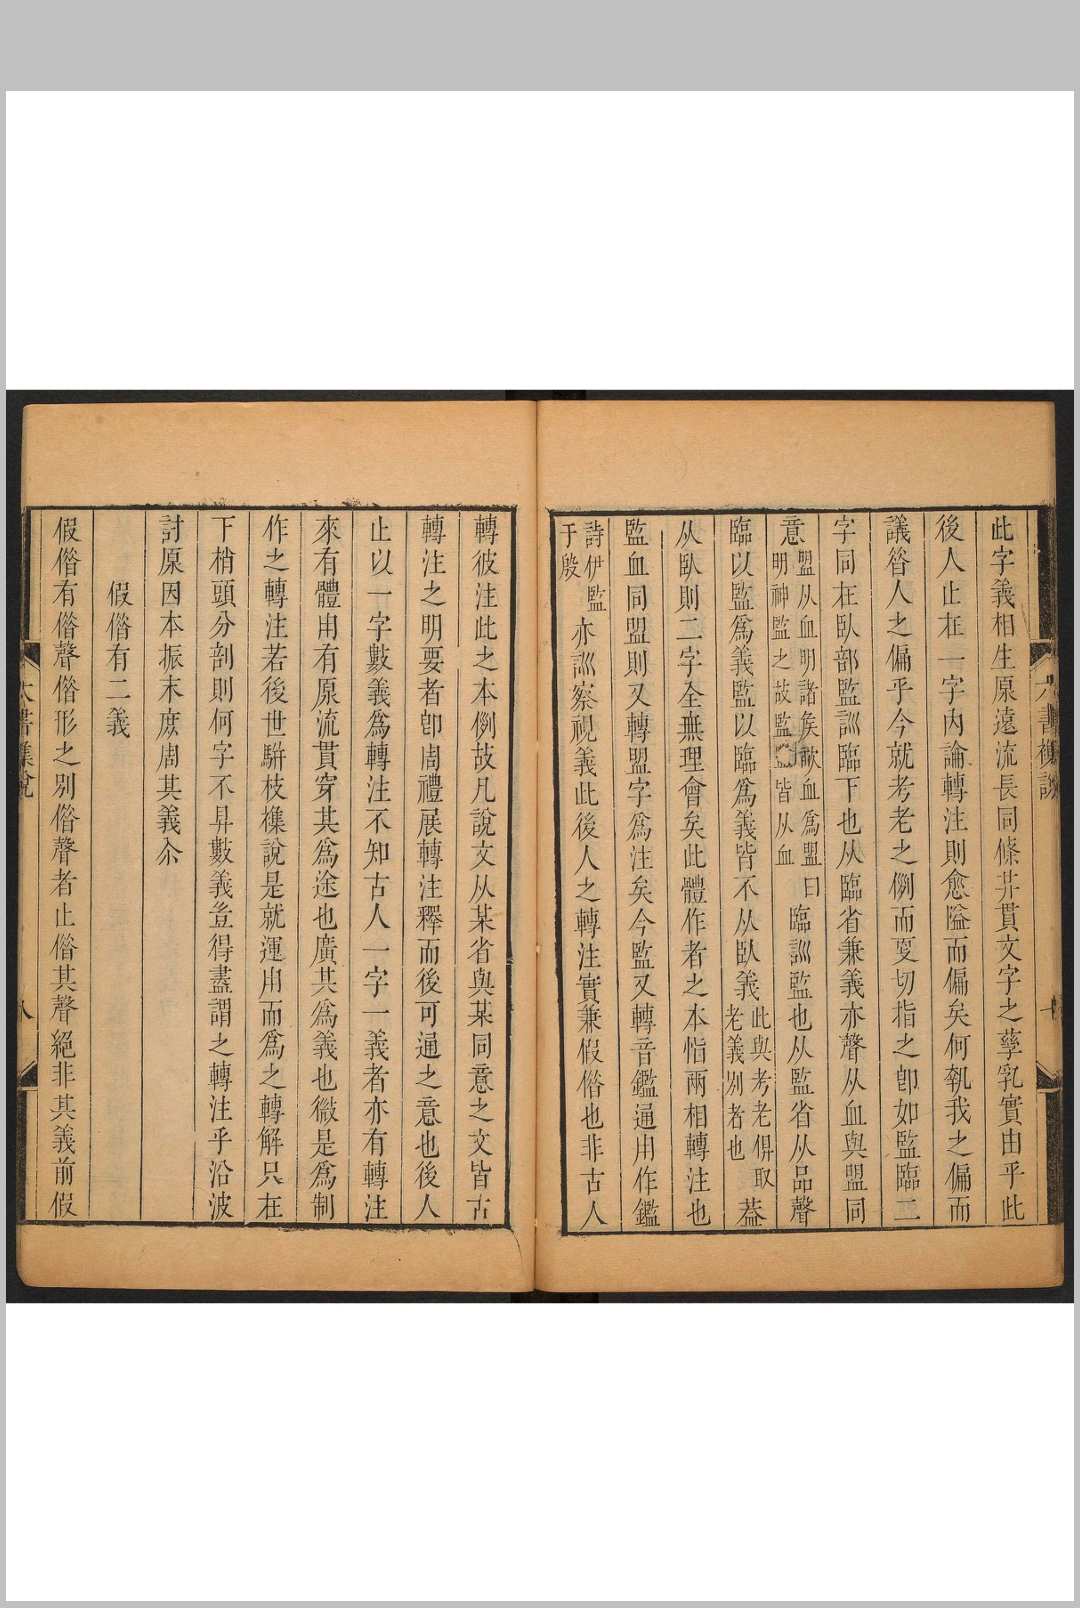 此字義相生原遠流長同條共貫文字之孳乳實由乎此
後人止在一字內論轉注則愈隘而偏矣何執我之偏而
議昝人之偏乎今就考老之例而更切指之卽如監臨二
字同在臥部監訓臨下也从臨省兼義亦聲从血與盟同
意
盟从血明諸矦歃血爲盟曰
明神監之故監盟皆从血
臨訓監也从監省从品聲
臨以監爲義監以臨爲義皆不从臥義
此與考老俱取
老義別者也
葢
从臥則二字全無理會矣此體作者之本恉兩相轉注也
監血同盟則又轉盟字爲注矣今監又轉音鑑通用作鑑
詩伊監
于殷
亦訓察視義此後人之轉注實兼假偺也非古人
轉彼注此之本例故凡說文从某省與某同意之文皆古
轉注之明要者卽周禮展轉注釋而後可通之意也後人
止以一字數義爲轉注不知古人一字一義者亦有轉注
來有體用有原流貫穿其爲途也廣其爲義也微是爲制
作之轉注若後世駢枝襍說是就運用而爲之轉解只在
下梢頭分剖則何字不昇數義豈得盡謂之轉注乎沿波
討原因本振末庶周其義尒
假偺有二義
假偺有偺聲偺形之別偺聲者止偺其聲絕非其義前假
六書襍說
八